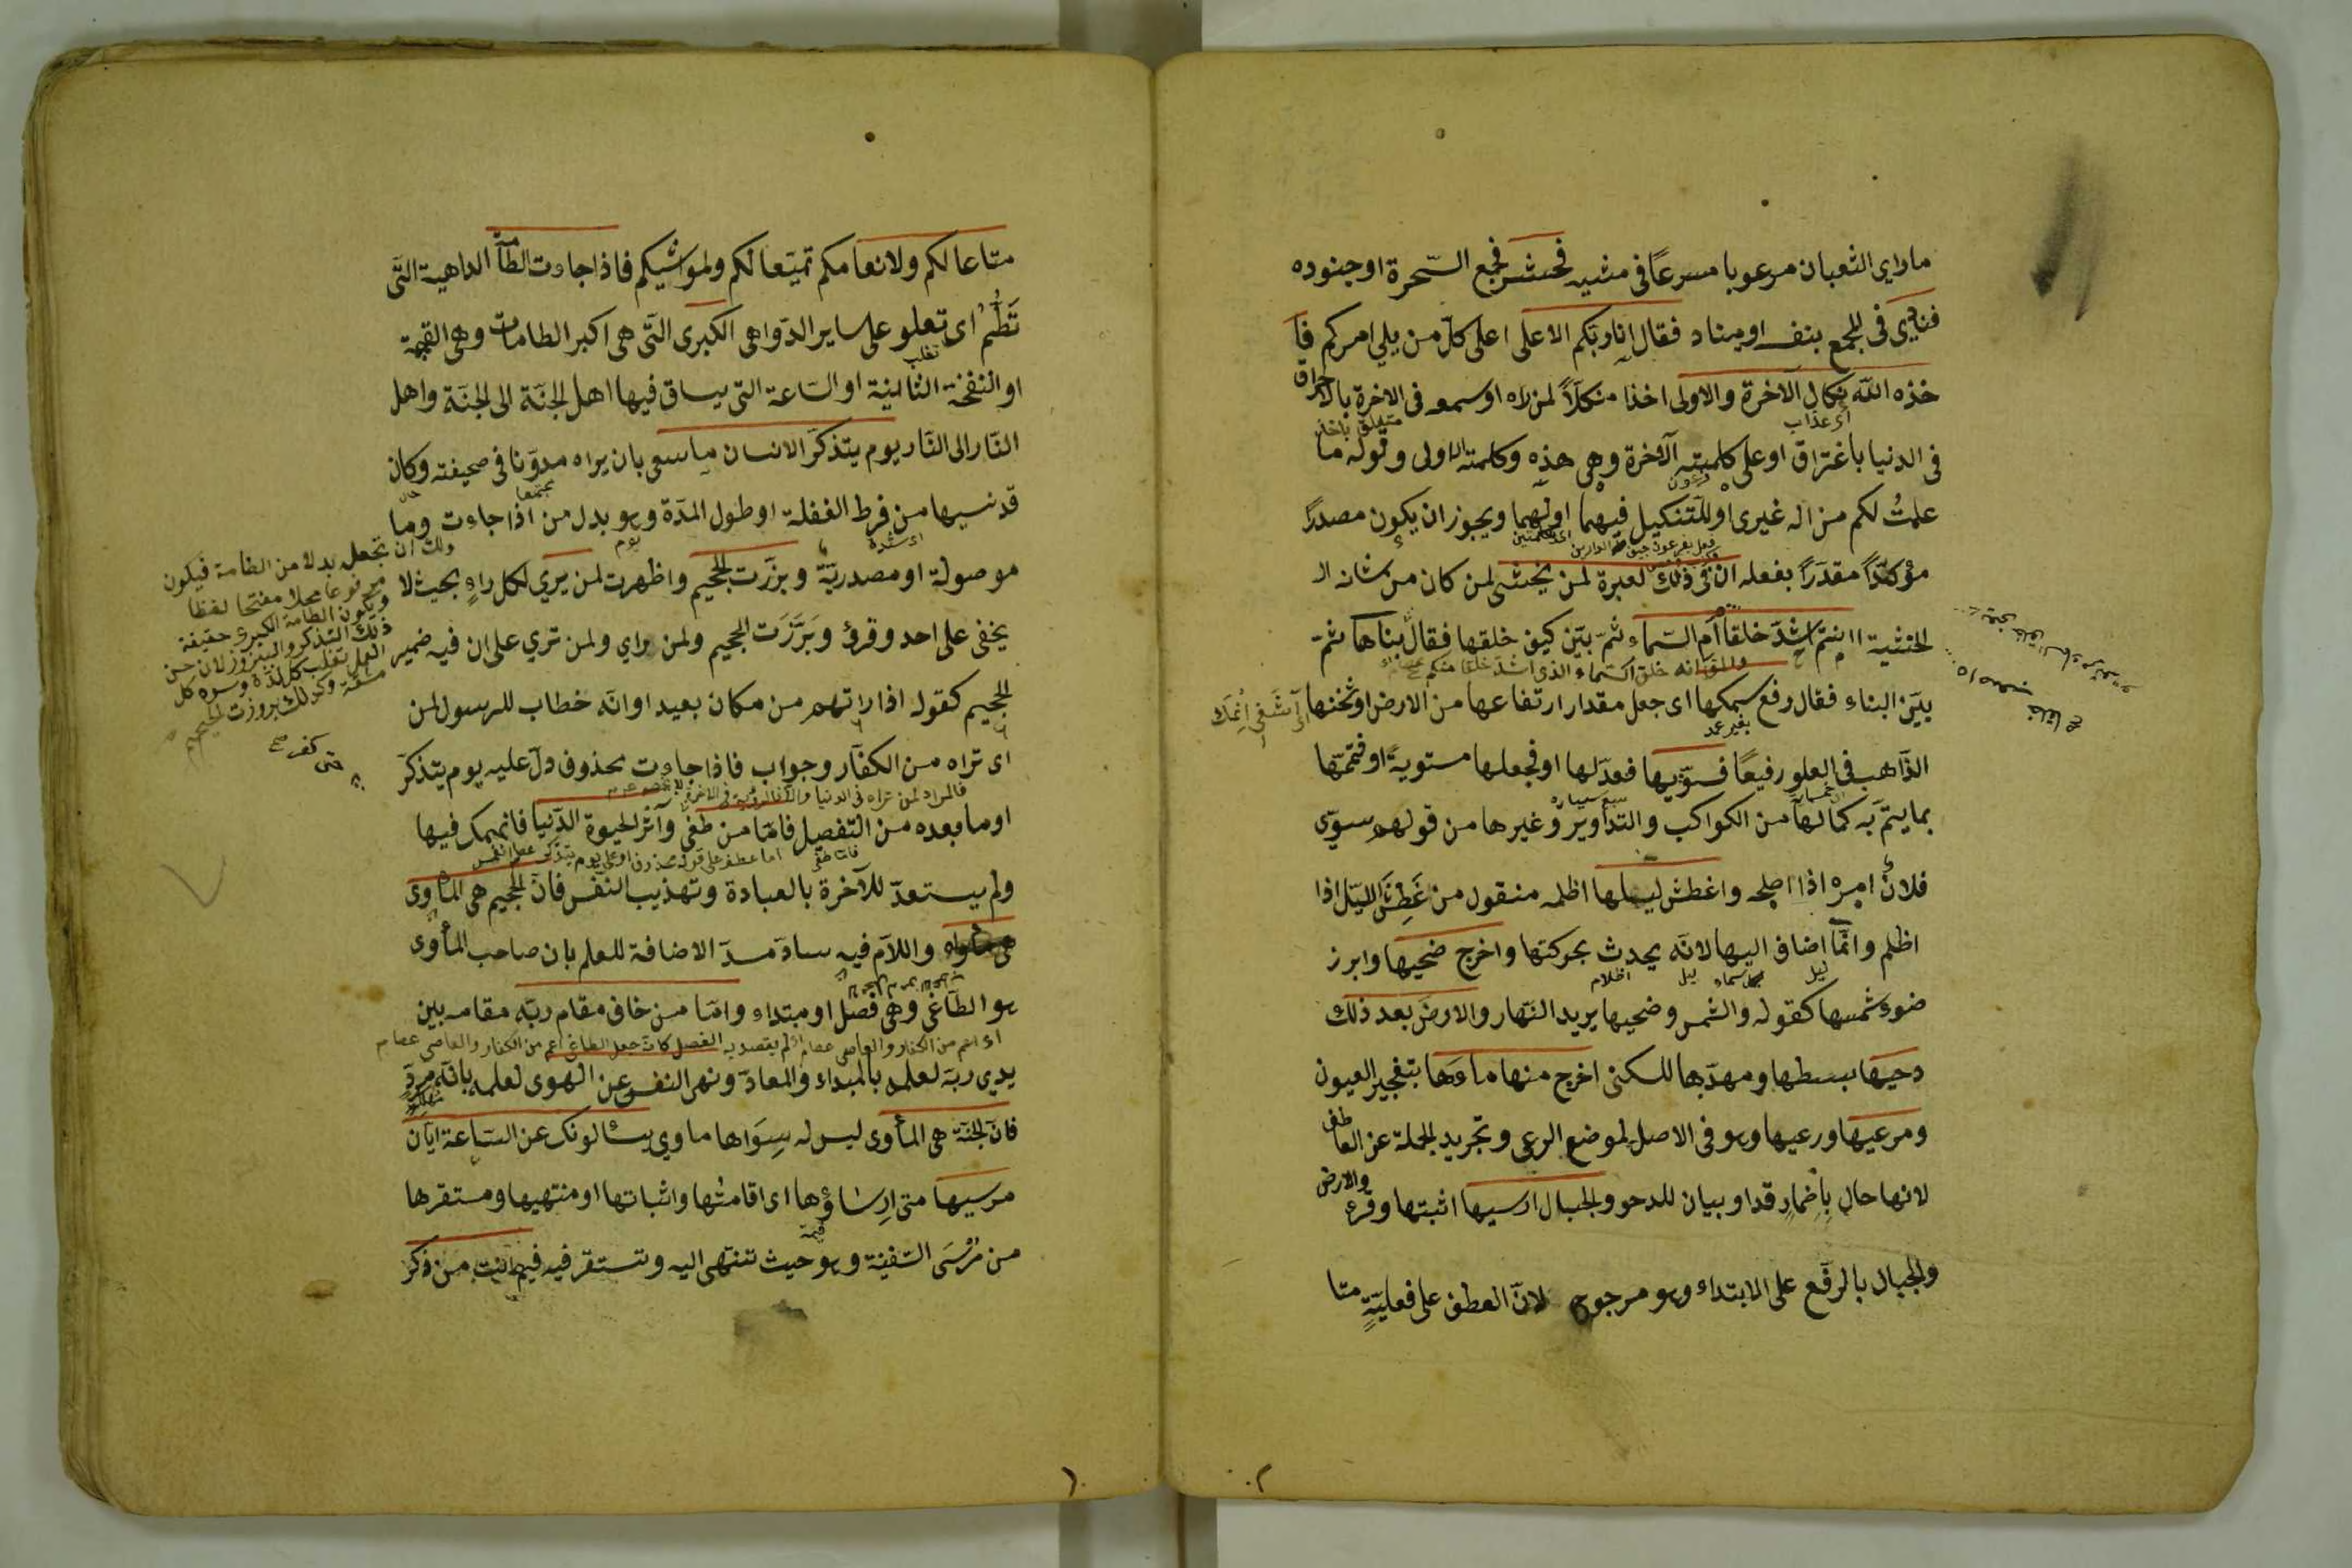 ماراي الثعبان مرعوبا مسرعًا في مشيه فحشر فجمع السّحرة او جنوده
فنادى في المجمع بنفسه او مناد فقال انا ربكم الاعلى اعلى كلّ من يلي امركم فا
خذه اللّه نكال الآخرة والاولى اخذا منكلًا لمن راه او سمعه في الاخرة بالاحراق
اى عذاب
متعلق باخذ
في الدنيا باغتراق او على كلمته الآخرة وهي هذه وكلمته الاولى وقوله ما
فرعون
علمتُ لكم من اله غيرى او للتنكيل فيهما او لهما ويجوز ان يكون مصدرًا
مؤكدًا مقدرًا بفعله ان في ذلك لعبرة لمن يخشى لمن كان من شانه ال
الخشية اانتم اشدّ خلقًا ام السّماء ثمّ بيّن كيف خلقها فقال بناها ثمّ
بيّن البناء فقال رفع سمكها اى جعل مقدار ارتفاعها من الارض او ثخنها
بغير عمد
الذّاهب في العلو رفيعًا فسوّيها فعدّلها او فجعلها مستوية او فتمّمها
بما يتمّ به كمالها من الكواكب والتداوير وغيرها من قولهم سوّى
فلانٌ امره اذا اصلحه واغطش ليلها اظلمه منقول من غَطِشَ الليل اذا
اظلم وانّما اضافه اليها لانّه يحدث بحركتها واخرج ضحيها وابرز
ليل
ليل
اظلام
ضوء شمسها كقوله والشمس وضحيها يريد النّهار والارضَ بعد ذلك
دحيها بسطها ومهدّها للسكنى اخرج منها ماءها بتفجير العيون
ومرعيها ورعيها وهو في الاصل لموضع الرعى وتجريد الجملة عن العاطف
لانها حال بإضمار قد او بيان للدحو والجبال ارسيها اثبتها وقرء والارض
والجبال بالرّفع على الابتداء وهو مرجوح لانّ العطف على فعليّةٍ متا
متاعا لكم ولانعامكم تمتيعا لكم ولمواشيكم فاذا جاءت الطّآمّة الداهية التّى
تَطُمُّ اى تعلو على ساير الدّواهى الكبرى التّى هى اكبر الطامات وهى القيمة
تغلب
او النفخة الثانية او السّاعة التى يساق فيها اهل الجنّة الى الجنّة واهل
النّار الى النّار يوم يتذكّر الانسان ما سعى بان يراه مدوّنا في صحيفته وكان
قد نسيها من فرط الغفلة او طول المدّة وهو بدل من اذا جاءت وما
اى شدة
يوم
موصولة او مصدريّة وبرّزت الجحيم واظهرت لمن يرى لكل راءٍ بحيث لا
يخفى على احد وقرئ وبَرَّزَت الجحيم ولمن راى ولمن ترى على ان فيه ضمير
الجحيم كقوله اذا راتهم من مكان بعيد او انّه خطاب للرسول لمن
اى تراه من الكفّار وجواب فاذا جاءت محذوف دلّ عليه يوم يتذكّر
او ما بعده من التفصيل فامّا من طغى وآثر الحيوة الدّنيا فانهمك فيها
ولم يستعدّ للآخرة بالعبادة وتهذيب النّفس فانّ الجحيم هى المأوى
واللّام فيه سادّ مسدّ الاضافة للعلم بان صاحب المأوى
هو الطّاغى وهى فصل او مبتداء وامّا من خاف مقام ربّه مقامه بين
يدى ربّه لعلمه بالمبداء والمعاد ونهى النفس عن الهوى لعلمه بانّه مردٍ
مهلك
فانّ الجنّة هى المأوى ليس له سِوَاها ماوى يسئالونك عن السّاعة ايّان
مرسيها متى ارساؤها اى اقامتُها واثباتها او منتهيها ومستقرها
من مُرْسَى السّفينة وهو حيث تنتهى اليه وتستقر فيه فيم انت من ذكر
ولك ان تجعل بدلا من الطامة فيكون
مرفوعا محلا مفتحا لفظا
ويكون الطامة الكبرى حقيقة
ذلك التذكر والبروز لان حسن
العمل تغلب كل لذة وسوءه كل
مشقة وكذلك بروز الجحيم